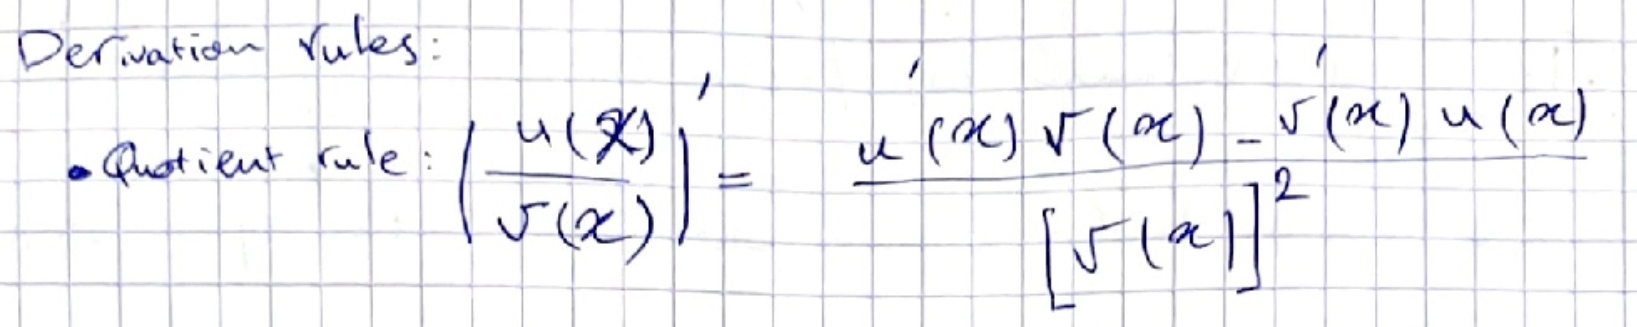 Derivation rules:
• Quotient rule: (u(x)/v(x))' = (u'(x) v(x) - v'(x) u(x))/[v(x)]²